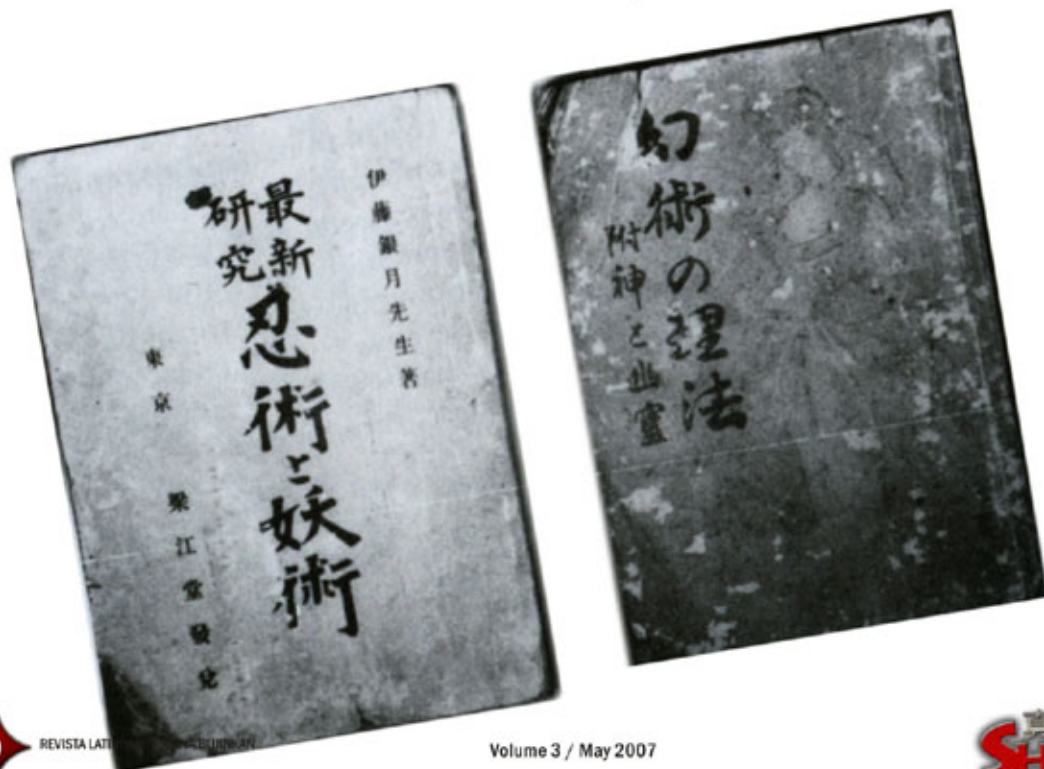 伊藤銀月先生著
最新
研究
忍術と妖術
東京 梁江堂發兌
幻術の理法
附神と幽靈
REVISTA
Volume 3 / May 2007